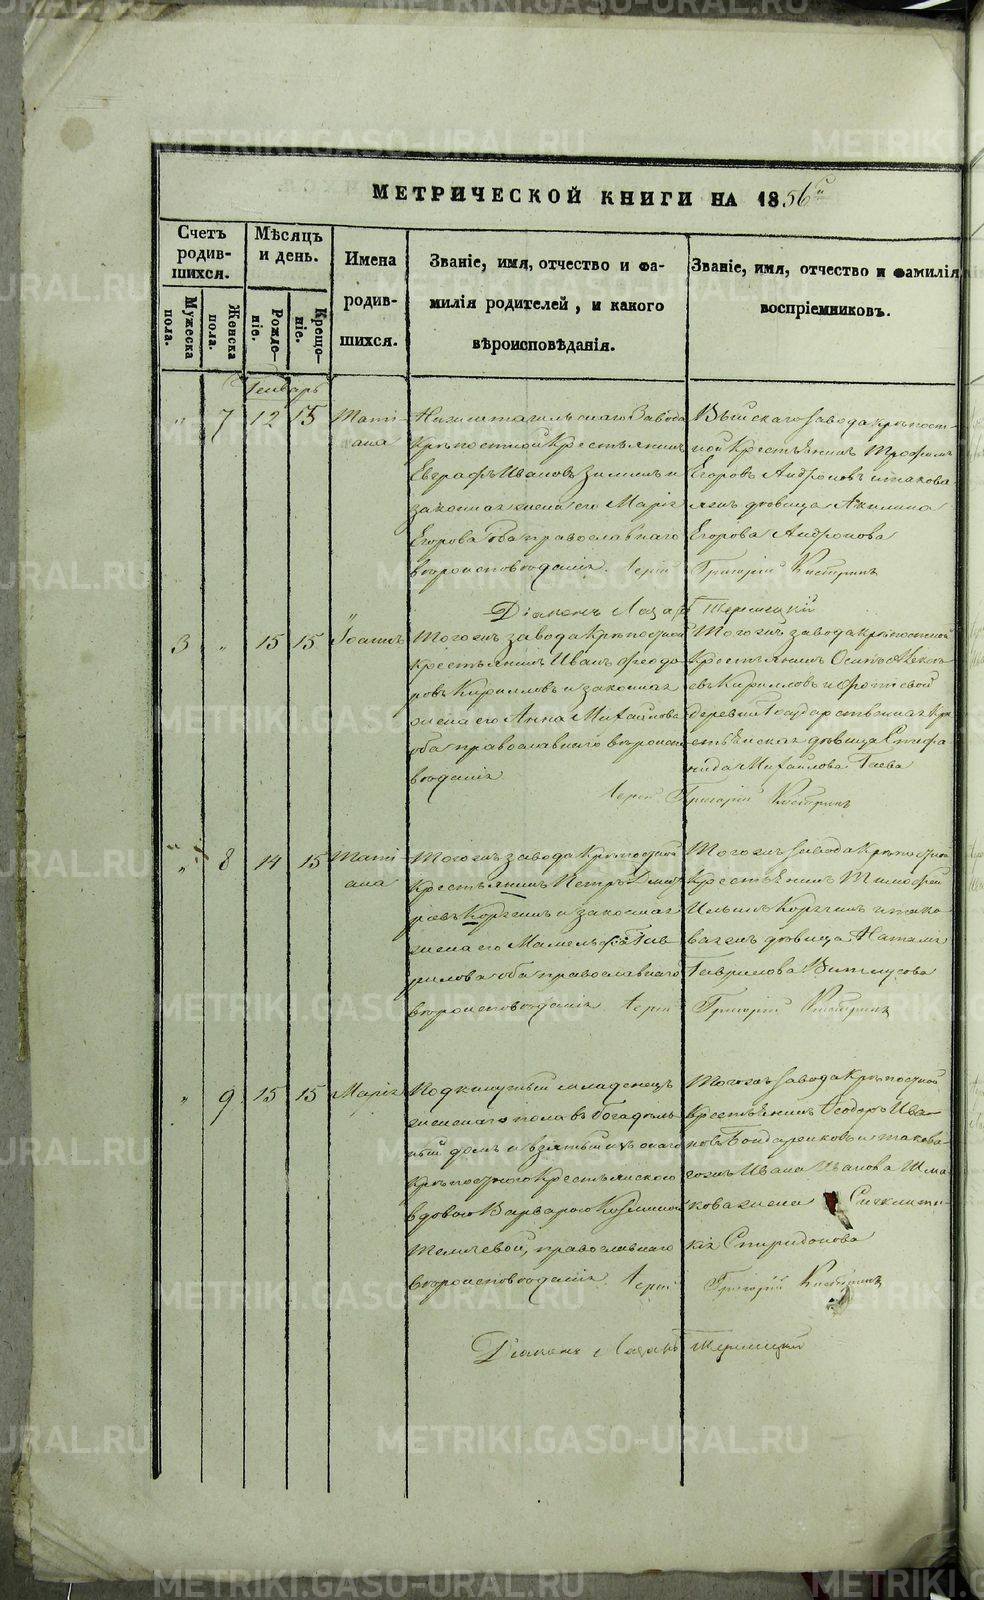 METRIKI.GASO-URAL.RU
МЕТРИЧЕСКОЙ КНИГИ НА 1856
Счетъ родившихся.
Мужеска пола.
Женска пола.
Мѣсяцъ и день.
Рожденіе.
Крещеніе.
Имена родившихся.
Званіе, имя, отчество и фамилія родителей, и какого вѣроисповѣданія.
Званіе, имя, отчество и фамилія воспріемниковъ.
Генварь
„ 7 12 15 Татіана
Нижнетагильскаго Завода
крѣпостной крестьянинъ
Евграфъ Ивановъ Зиминъ и
законная жена его Марія
Егорова оба православнаго
вѣроисповѣданія.
Выйскаго завода крѣпост-
ной крестьянинъ Трофимъ
Егоровъ Андроновъ и такова
же дѣвица Акилина
Егорова Андронова
Іерей Григорій
Діаконъ Лазарь
3 „ 15 15 Іоаннъ
Тогожъ завода крѣпостной
крестьянинъ Иванъ Ѳеодо-
ровъ Кирилловъ и законная
жена его Анна Михайлова
оба православнаго вѣроиспо-
вѣданія
Тогожъ завода крѣпостной
крестьянинъ Осипъ Алексѣ-
евъ Кирилловъ и
деревни Государственная кре-
стьянская дѣвица Стефа-
нида Михайлова
Іерей Григорій
„ 8 14 15 Татіана
Тогожъ завода крѣпостной
крестьянинъ Петръ Дмит-
ріевъ и законная
жена его Гав-
рилова оба православнаго
вѣроисповѣданія
Тогожъ завода крѣпостной
крестьянинъ Тимофей
Ильинъ и тако-
ваяжъ дѣвица Наталія
Гаврилова
Іерей Григорій
„ 9 15 15 Марія
Подкинутый младенецъ
женскаго пола въ Богадѣль-
ный домъ и взятый
крѣпостного крестьянского
вдовою Варварою Козминой
православнаго
вѣроисповѣданія.
Тогожъ завода крѣпостной
крестьянинъ Ѳеодоръ Ива-
новъ Бондаренковъ и такова
гожъ Ивана Иванова Шма-
кова жена
кія Спиридонова
Іерей Григорій
Діаконъ Лазарь